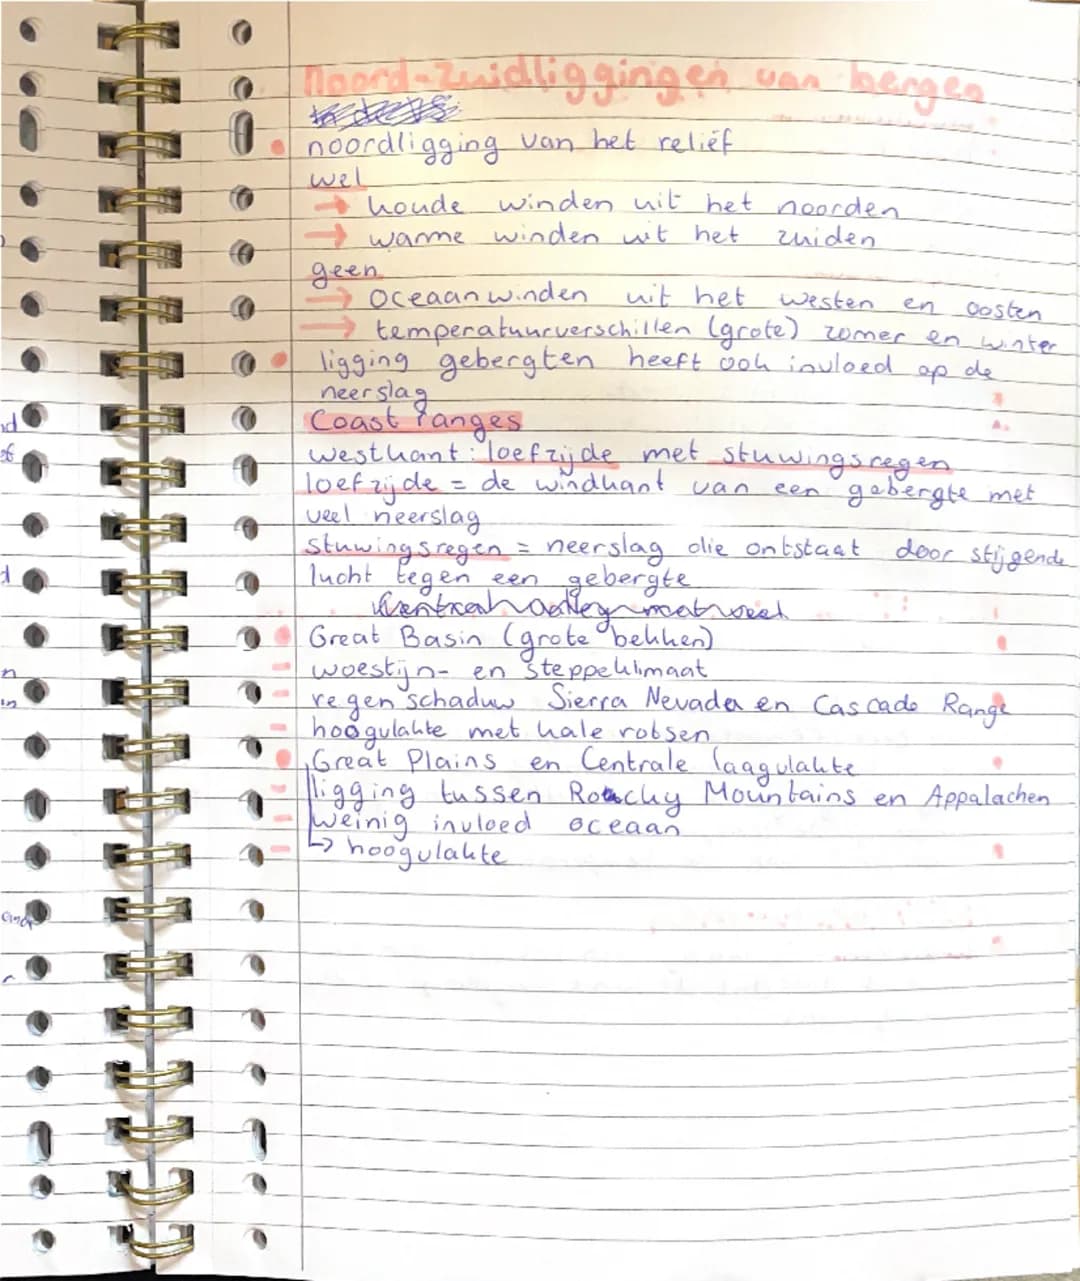 Noord-Zuidliggingen van bergen
noordligging van het reliëf
wel
→ koude winden uit het noorden
→ warme winden uit het zuiden
geen
→ oceaanwinden uit het westen en oosten
→ temperatuurverschillen (grote) zomer en winter
ligging gebergten heeft ook invloed op de
neerslag
Coast ranges
westkant: loefzijde met stuwingsregen
loefzijde = de windkant van een gebergte met
veel neerslag
stuwingsregen = neerslag die ontstaat door stijgende
lucht tegen een gebergte
Great Basin (grote bekken)
- woestijn- en steppeklimaat
- regenschaduw Sierra Nevada en Cascade Range
- hoogvlakte met kale rotsen
Great Plains en Centrale laagvlakte
- ligging tussen Roacky Mountains en Appalachen
- weinig invloed oceaan
- ↳ hoogvlakte